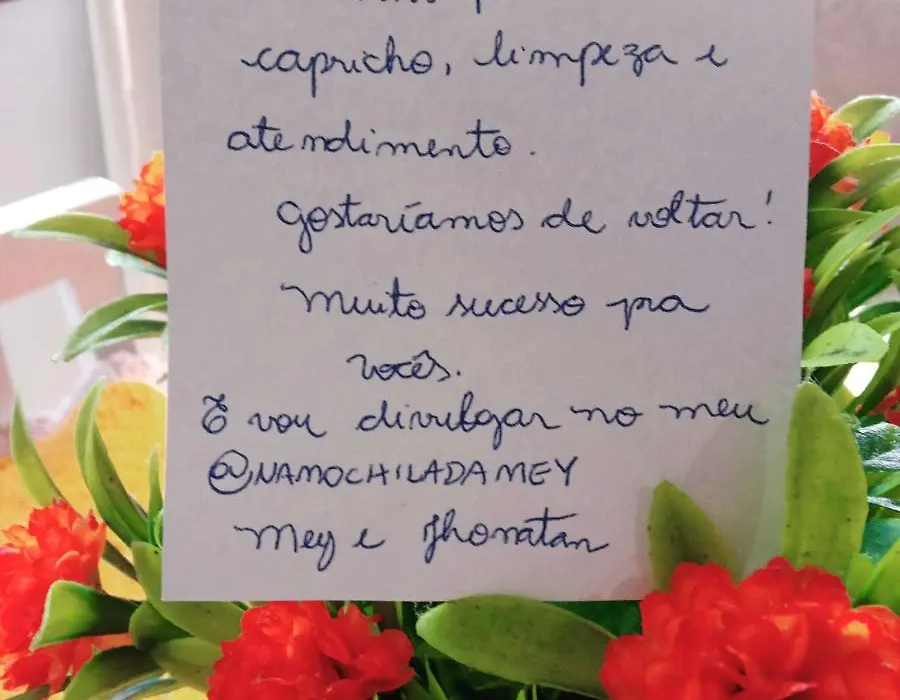 capricho, limpeza e
atendimento.
Gostaríamos de voltar!
Muito sucesso pra
vocês.
E vou divulgar no meu
@NAMOCHILADAMEY
Mey e Jhonatan